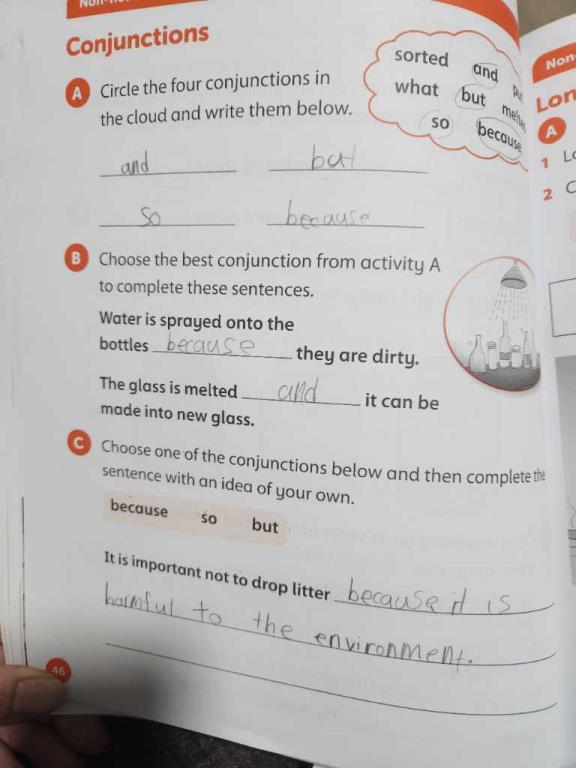 Conjunctions
A Circle the four conjunctions in
the cloud and write them below.
sorted and
what but
so because
and but
so because
B Choose the best conjunction from activity A
to complete these sentences.
Water is sprayed onto the
bottles because they are dirty.
The glass is melted and it can be
made into new glass.
C Choose one of the conjunctions below and then complete the
sentence with an idea of your own.
because so but
It is important not to drop litter because it is
harmful to the environment.
46
A
1
2